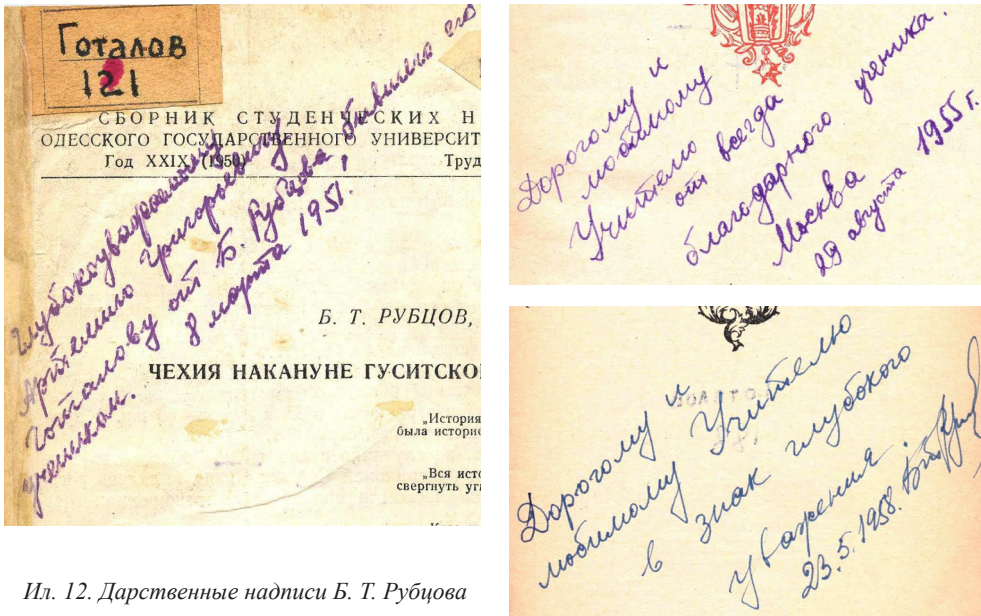 Готалов
121
СБОРНИК СТУДЕНЧЕСКИХ Н
ОДЕССКОГО ГОСУДАРСТВЕННОГО УНИВЕРСИТ
Год XXIX (1950)
Труд
Глубокоуважаемому
Артемию Григорьевичу
Готалову от Б. Рубцова, бывшего его
учеником.
8 марта 1951.
Б. Т. РУБЦОВ,
ЧЕХИЯ НАКАНУНЕ ГУСИТСКО
„История
была историе
„Вся исто
свергнуть уг
Ил. 12. Дарственные надписи Б. Т. Рубцова
Дорогому и
любимому
Учителю
от всегда
благодарного ученика.
Москва
29 августа 1955 г.
Дорогому и
любимому Учителю
в знак глубокого
уважения
23.5.1958.